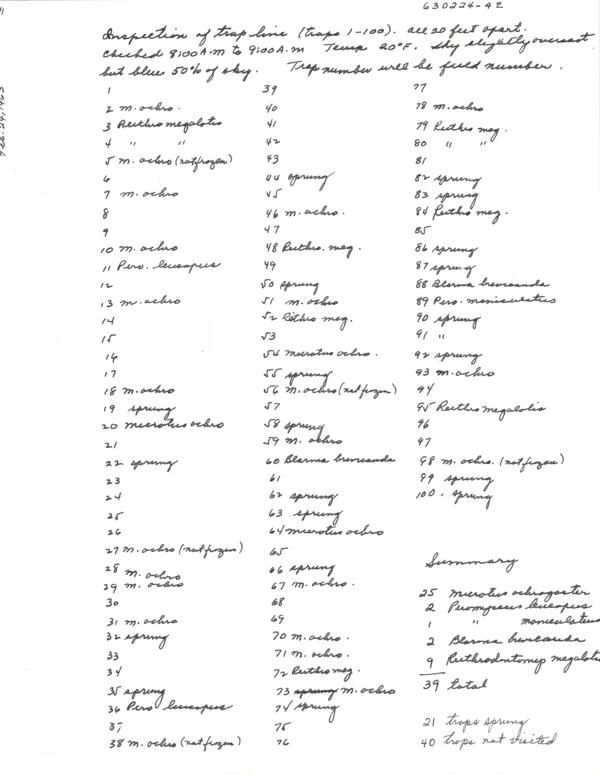 630224-42
Inspection of trap line (traps 1-100). all 20 feet apart.
Checked 8:00 A.M to 9:00 A.M Temp 20°F. Sky slightly overcast
but blue 50% of sky. Trap number will be field number.
Feb. 24, 1963
1
2 m. ochro.
3 Reithro megalotis
4 " "
5 m. ochro (not frozen)
6
7 m. ochro
8
9
10 m. ochro
11 Pero. leucopus
12
13 m. ochro
14
15
16
17
18 m. ochro
19 sprung
20 microtus ochro
21
22 sprung
23
24
25
26
27 m. ochro (not frozen)
28 m. ochro
29 m. ochro
30
31 m. ochro
32 sprung
33
34
35 sprung
36 Pero leucopus
37
38 m. ochro (not frozen)
39
40
41
42
43
44 sprung
45
46 m. ochro.
47
48 Reithro. meg.
49
50 sprung
51 m. ochro
52 Reithro meg.
53
54 microtus ochro.
55 sprung
56 m. ochro (not frozen)
57
58 sprung
59 m. ochro
60 Blarina brevicauda
61
62 sprung
63 sprung
64 microtus ochro
65
66 sprung
67 m. ochro.
68
69
70 m. ochro.
71 m. ochro.
72 Reithro meg.
73 sprung m. ochro
74 sprung
75
76
77
78 m. ochro
79 Reithro meg.
80 " "
81
82 sprung
83 sprung
84 Reithro meg.
85
86 sprung
87 sprung
88 Blarina brevicauda
89 Pero. maniculatus
90 sprung
91 "
92 sprung
93 m. ochro
94
95 Reithro megalotis
96
97
98 m. ochro. (not frozen)
99 sprung
100. sprung
Summary
25 microtus ochrogaster
2 Peromyscus leucopus
1 " maniculatus
2 Blarina brevicauda
9 Reithrodontomys megalotis
39 total
21 traps sprung
40 traps not visited